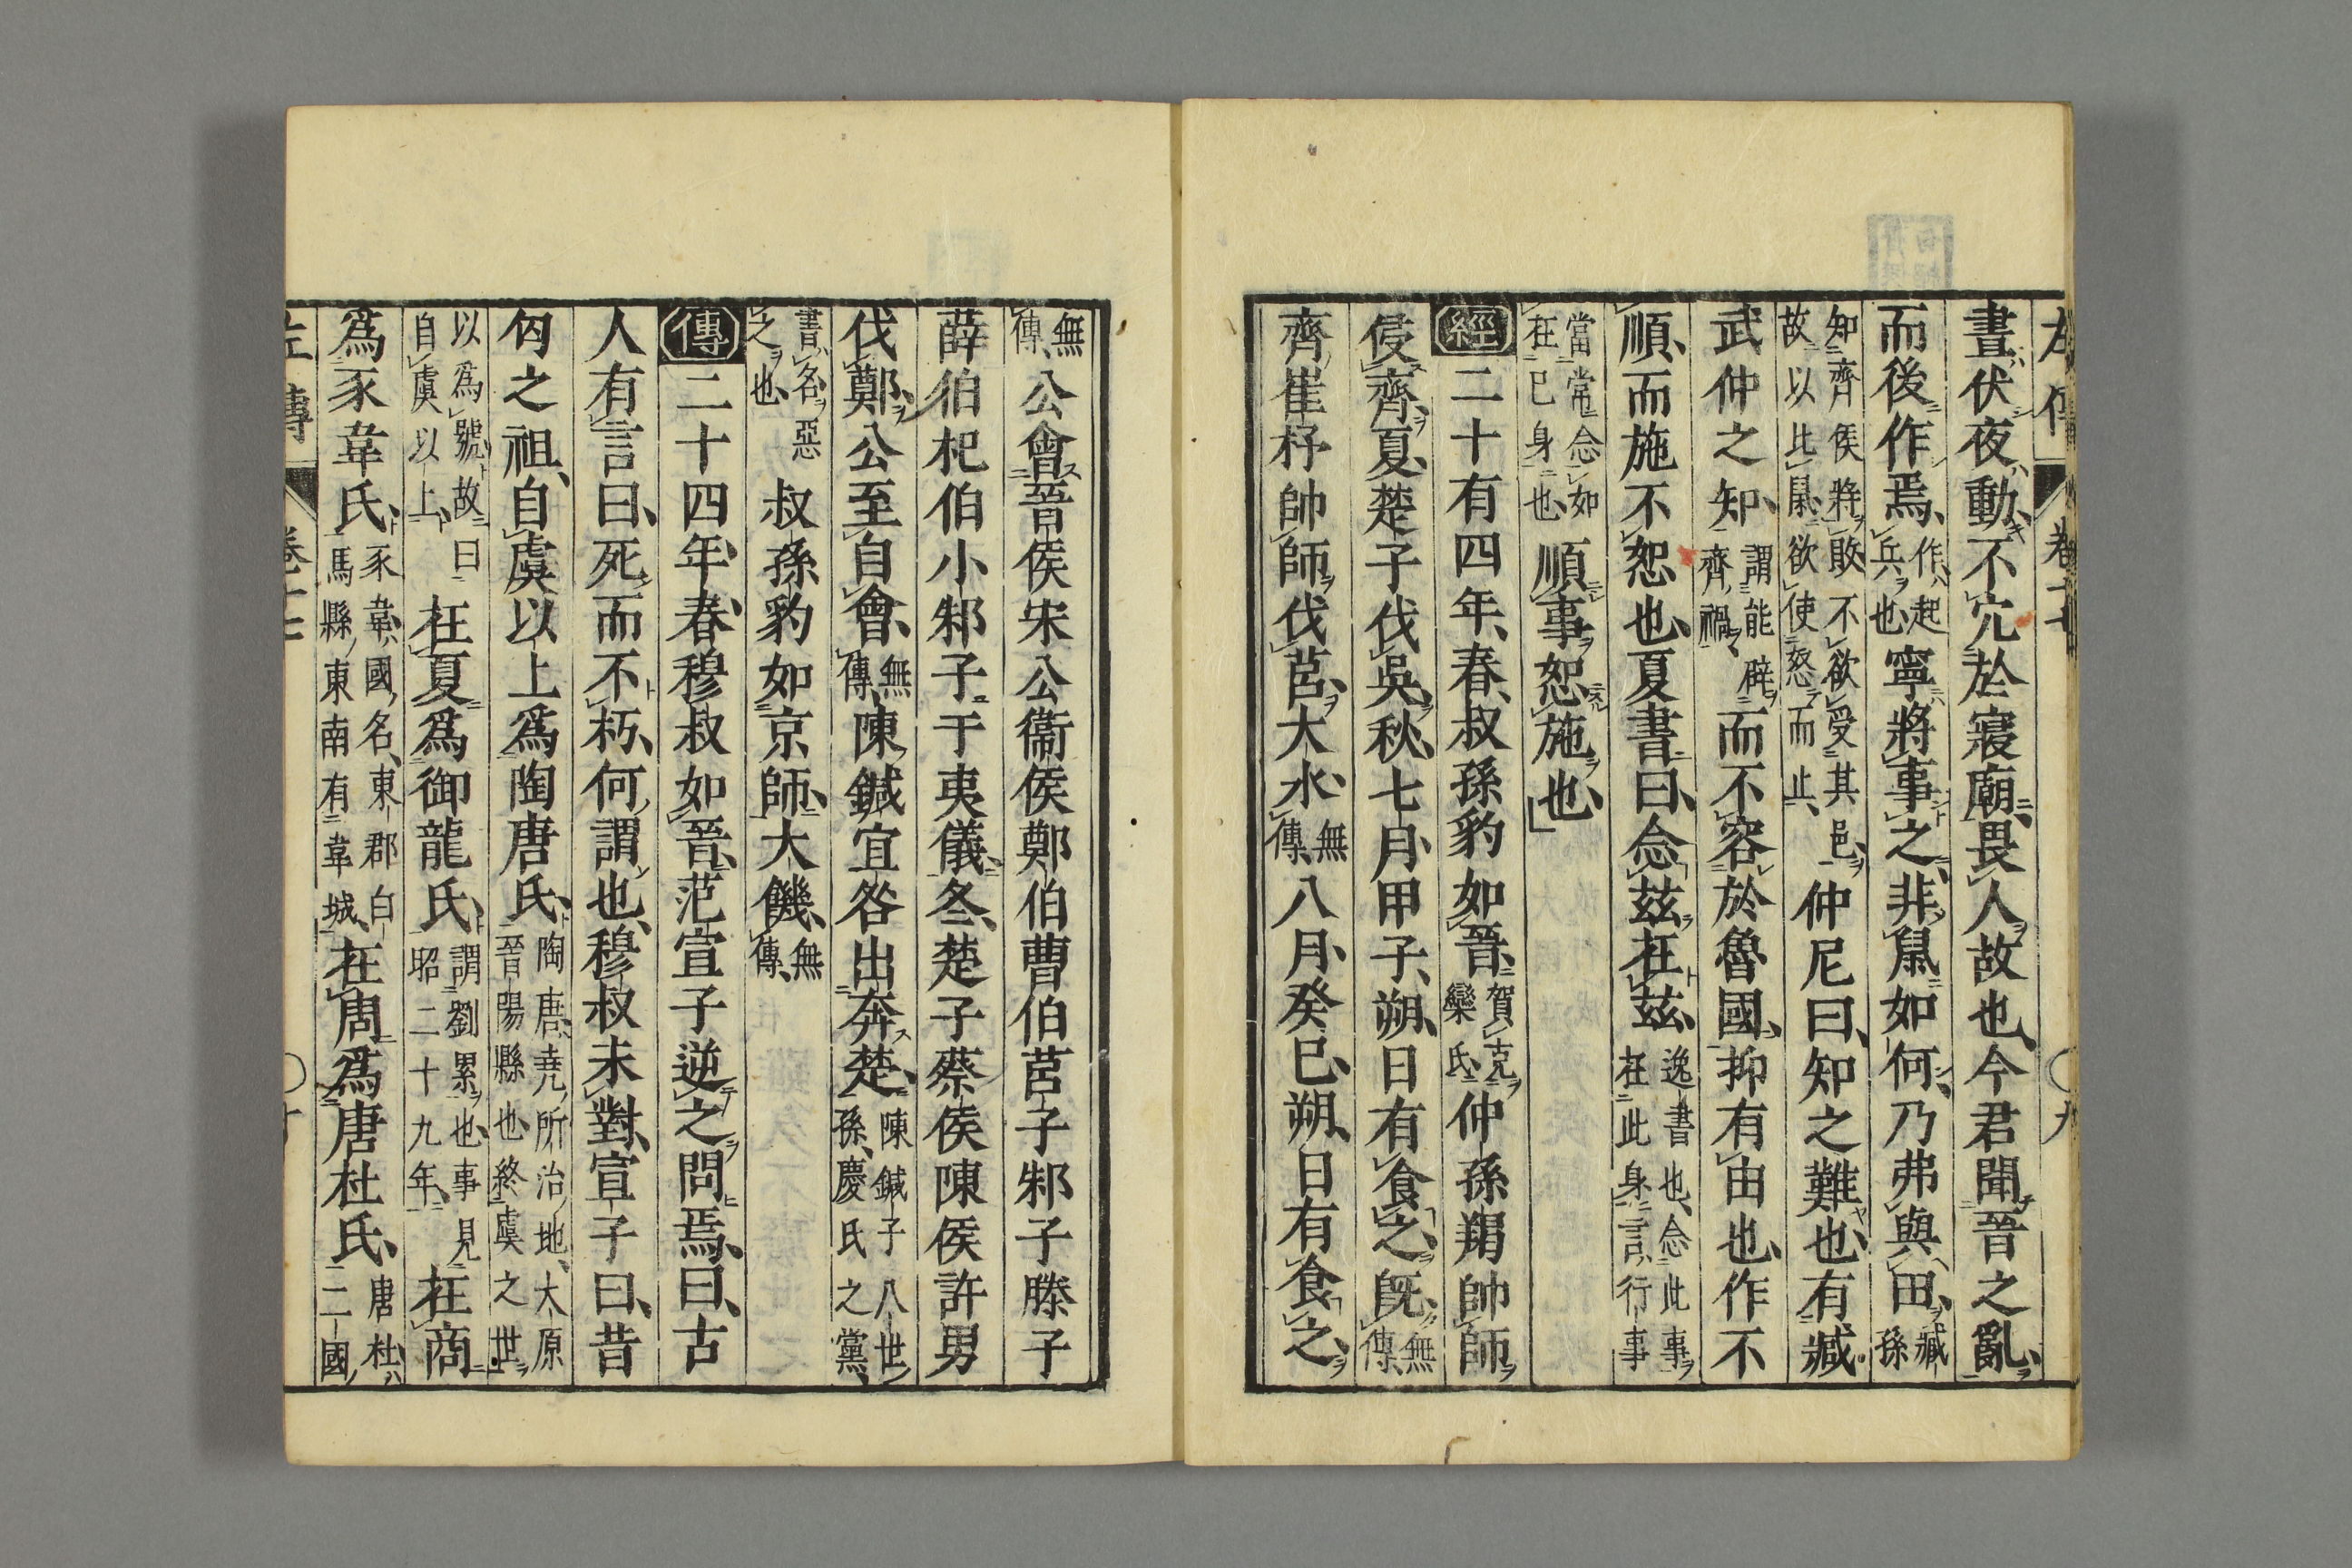 左傳 卷十七 ○九
晝伏夜動不穴於寢廟畏人故也今君聞晉之亂
而後作焉作起兵也寧將事之非鼠如何乃弗與田臧孫
知齊侯將敗不欲受其邑故以比鼠欲使怒而止仲尼曰知之難也有臧
武仲之知謂能辟齊禍而不容於魯國抑有由也作不
順而施不恕也夏書曰念茲在茲逸書也念此事在此身言行事
當常念如在己身也順事恕施也
經二十有四年春叔孫豹如晉賀克欒氏仲孫羯帥師
侵齊夏楚子伐吳秋七月甲子朔日有食之既無傳
齊崔杼帥師伐莒大水無傳八月癸巳朔日有食之
無傳公會晉侯宋公衞侯鄭伯曹伯莒子邾子滕子
薛伯杞伯小邾子于夷儀冬楚子蔡侯陳侯許男
伐鄭公至自會無傳陳鍼宜咎出奔楚陳鍼子八世孫慶氏之黨
書名惡之也叔孫豹如京師大饑無傳
傳二十四年春穆叔如晉范宣子逆之問焉曰古
人有言曰死而不朽何謂也穆叔未對宣子曰昔
匄之祖自虞以上爲陶唐氏陶唐堯所治地大原晉陽縣也終虞之世
以爲號故曰自虞以上在夏爲御龍氏謂劉累也事見昭二十九年在商
爲豕韋氏豕韋國名東郡白馬縣東南有韋城在周爲唐杜氏唐杜二國
左傳 卷十七 ○十